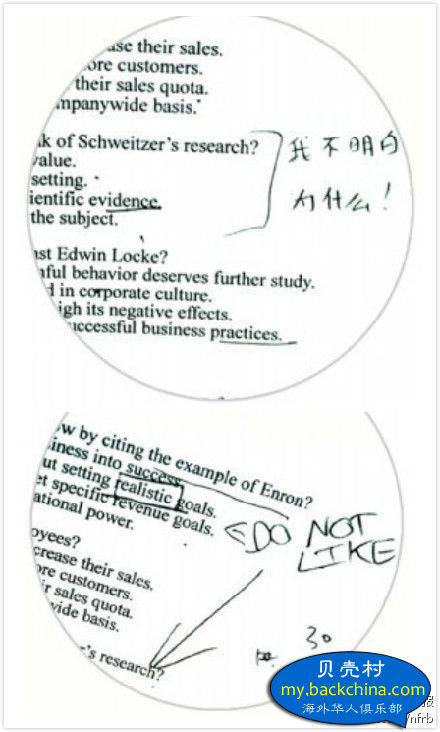 ase their sales.
ore customers.
their sales quota.
mpanywide basis."
k of Schweitzer's research?
value.
setting.
ientific evidence.
the subject.
我不明白
为什么！
ast Edwin Locke?
nful behavior deserves further study.
d in corporate culture.
igh its negative effects.
uccessful business practices.
ow by citing the example of Enron?
iness into success.
ut setting realistic goals.
et specific revenue goals.
ational power.
DO NOT
LIKE
oyees?
crease their sales.
ore customers.
ir sales quota.
wide basis.
r's research?
30
贝壳村
my.backchina.com
海外华人俱乐部
报
/nfrb